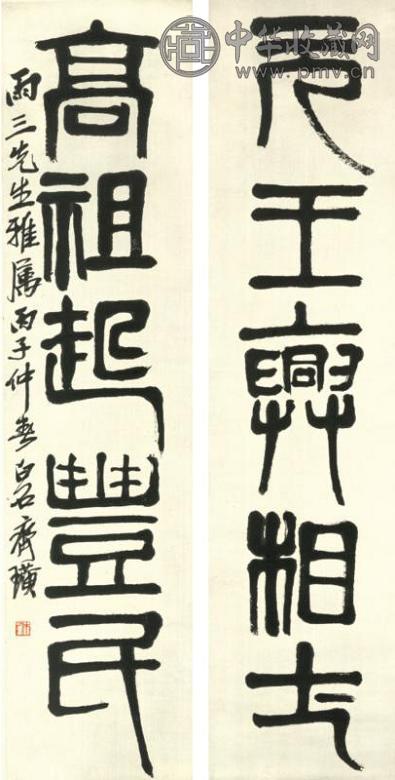 中华收藏网
www.pmv.cn
王興相土
高祖起豐民
雨三先生雅屬丙子仲春白石齊璜